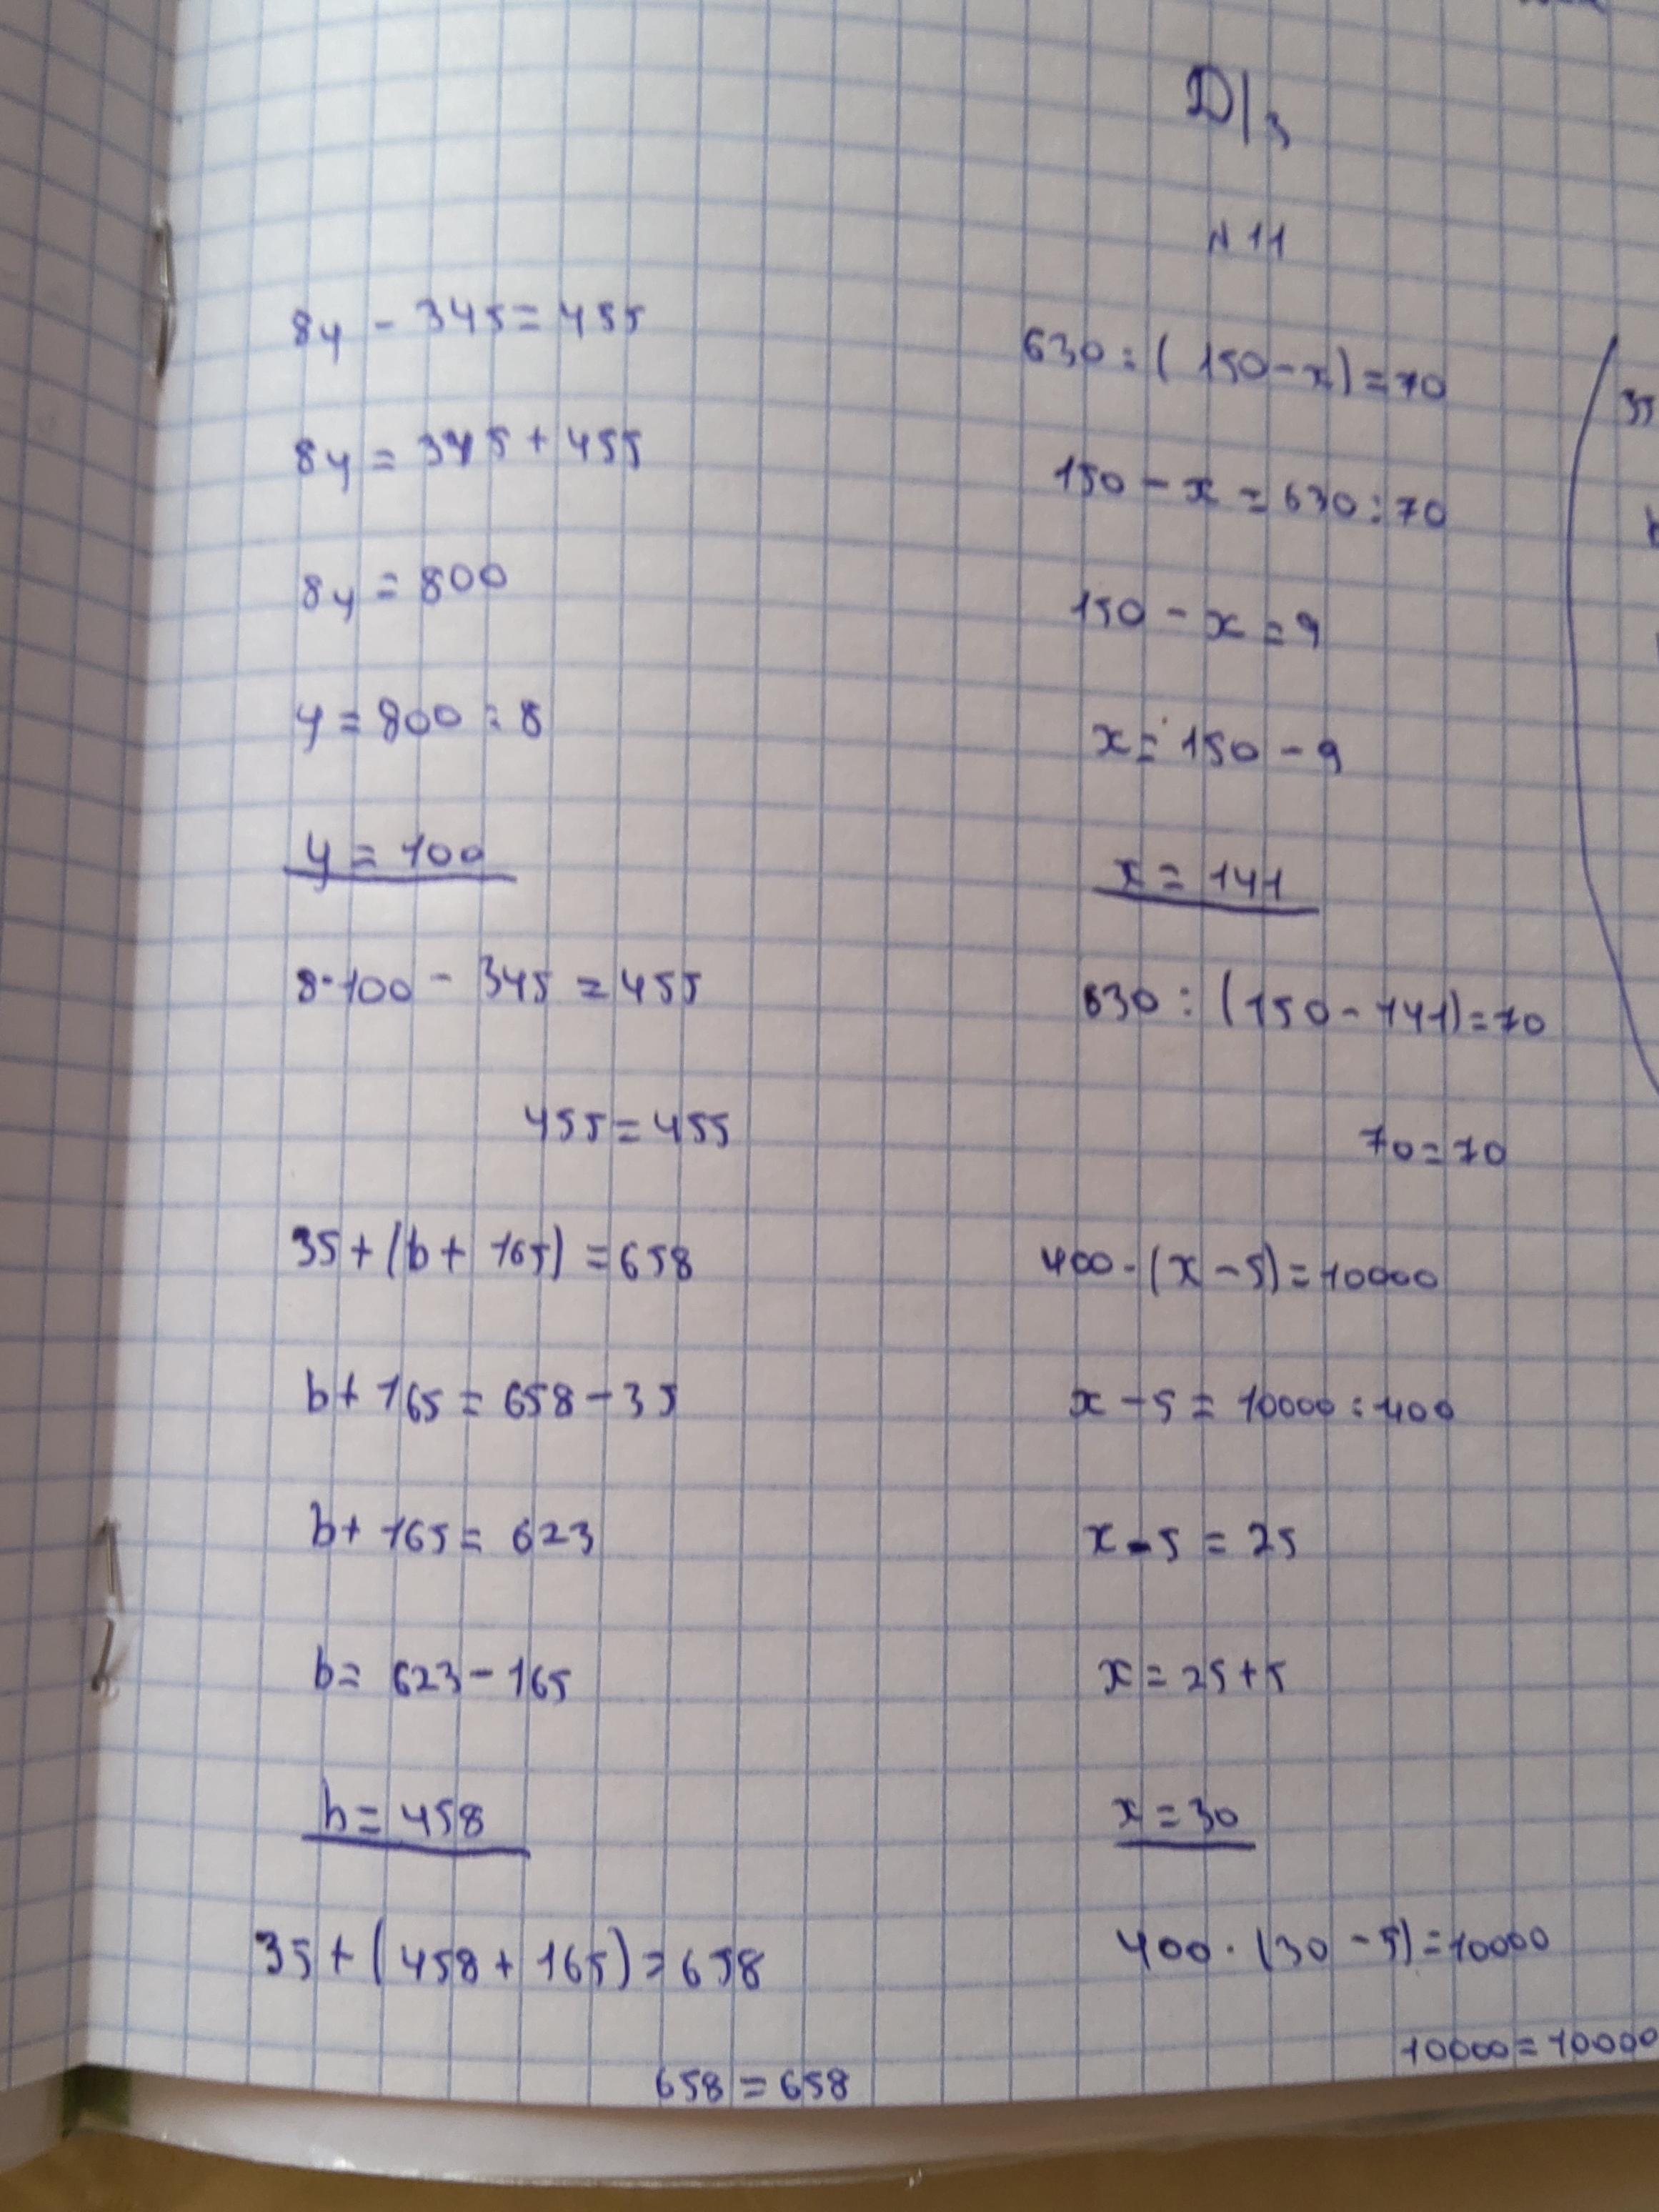 Д/з
N 11
8y - 345 = 455
8y = 345 + 455
8y = 800
y = 800 : 8
y = 100
8·100 - 345 = 455
455 = 455
630 : (150 - x) = 70
150 - x = 630 : 70
150 - x = 9
x = 150 - 9
x = 141
630 : (150 - 141) = 70
70 = 70
35 + (b + 165) = 658
b + 165 = 658 - 35
b + 165 = 623
b = 623 - 165
b = 458
35 + (458 + 165) = 658
658 = 658
400 · (x - 5) = 10000
x - 5 = 10000 : 400
x - 5 = 25
x = 25 + 5
x = 30
400 · (30 - 5) = 10000
10000 = 10000
35